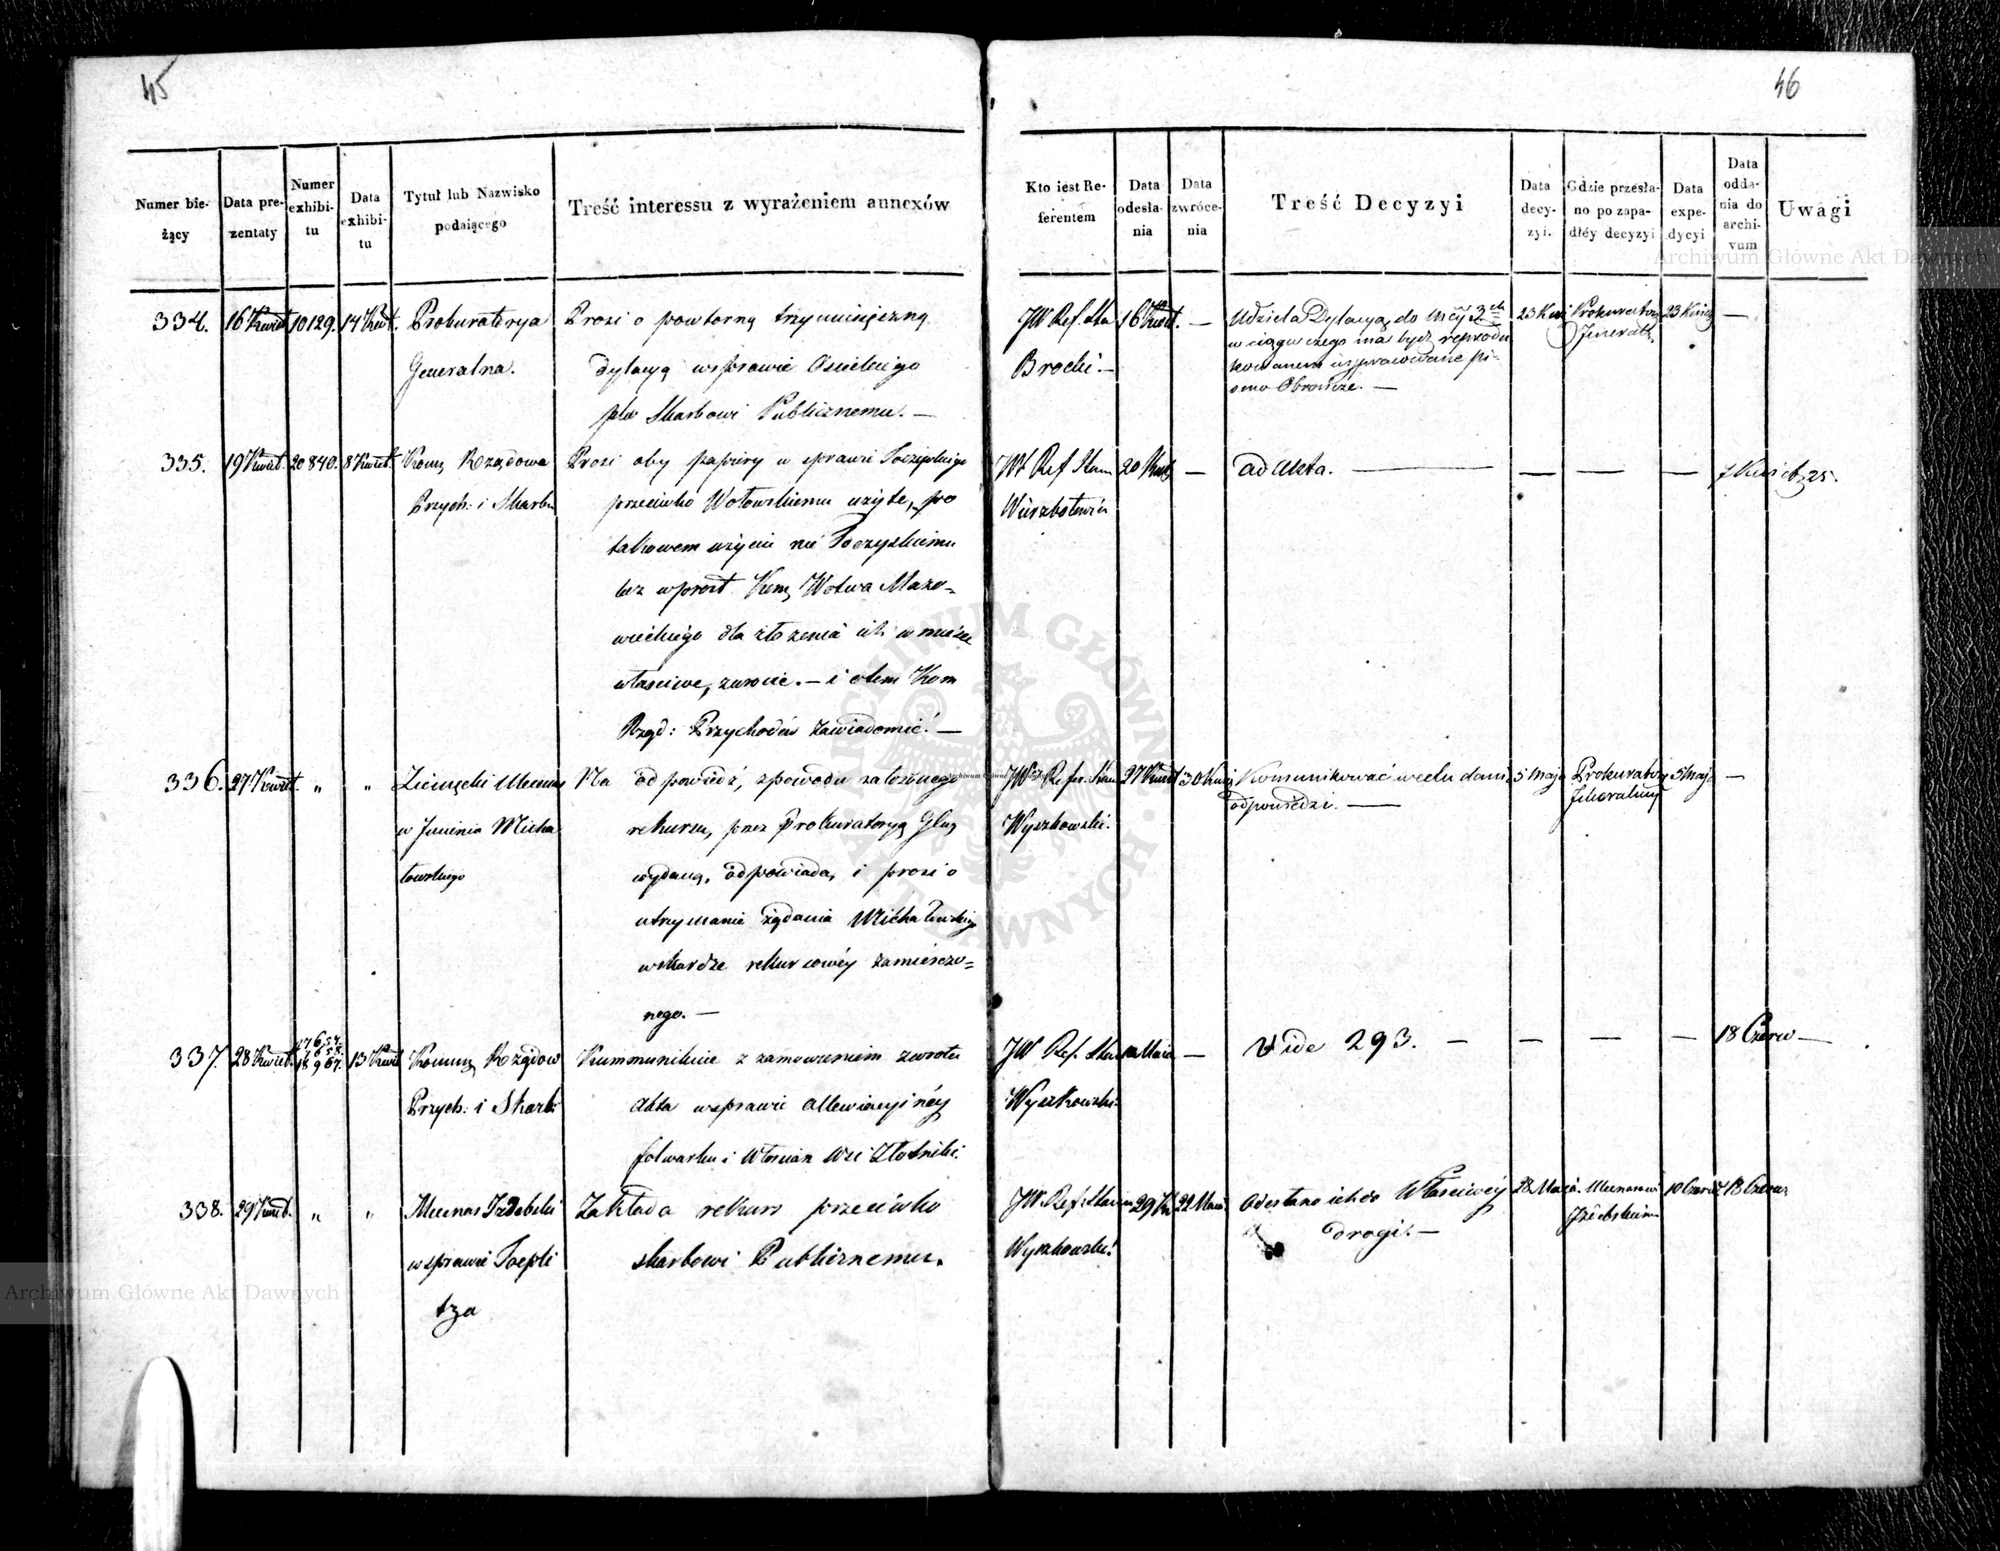 45
46
Numer bie-
żący
Data pre-
zentaty
Numer
exhibi-
tu
Data
exhibi-
tu
Tytuł lub Nazwisko
podaiącego
Treść interessu z wyrażeniem annexów
Kto iest Re-
ferentem
Data
odesła-
nia
Data
zwróce-
nia
Treść Decyzyi
Data
decy-
zyi.
Gdzie przesła-
no po zapa-
dłéy decyzyi
Data
expe-
dycyi
Data
odda-
nia do
archi-
vum
Uwagi
334.
16 Kwiet
10129.
14 Kwt.
Prokuratorya
Generalna.
Prosi o powtorną trzymiesięczną
dylacyą w sprawie Osieckiego
plo Skarbowi Publicznemu. —
JW Ref. Sta
Brocki. —
16 Kwt.
—
Udziela Dylacyą do Mcy 3ch
w ciągu czego ma bydź reprodu
kowanem usprawowane pi-
smo Obrończe. —
23 Kwi
Prokuratory
Jeneral.
23 Kwie
—
335.
19 Kwiet.
20840.
8 Kwiet.
Komis Rządowa
Przych: i Skarbu
Prosi aby papiery w sprawie Toczyskiego
przeciwko Wołowskiemu użyte, po
takowem użyciu nie Toczyskiemu
lecz wprost Kom, Wotwa Mazo-
wieckiego dla złożenia ich w mieisce
właściwe, zwrócić. — i o tem Kom
Rząd: Przychodów zawiadomić. —
JW Ref Stanu
Wierzbołowicz
20 Kwt
—
ad Akta. —
—
—
—
7 Kwiet 25.
336.
27 Kwiet.
„
„
Zieliński Mecenas
w Imieniu Micha
łowskiego
Na odpowiedź, z powodu założonego
rekursu, przez Prokuratoryą Glną
wydaną, odpowiada, i prosi o
utrzymanie żądania Michałowskiego
w skardze rekursowéy zamieszczo-
nego. —
JW Refer. Stanu
Wyszkowski.
27 Kwiet
30 Kwi
Kommunikować w celu dania
odpowiedzi. —
5 Maja
Prokuratory
Jeneralney
5 Maja
—
337.
28 Kwiet.
13 Kwiet
Kommis Rządow
Przych: i Skarb:
Kommunikuie z zamowieniem zwrotu
Akta w sprawie allewiacyinéy
folwarku i Włoscian Wsi Złotniki.
JW Ref. Stanu
Wyszkowski.
—
Vide 293. —
—
—
—
18 Czerw —
338.
29 Kwiet.
„
„
Mecenas Izdebski
w sprawie Toepli
tza
Zakłada rekurs przeciwko
skarbowi Publicznemu.
JW. Ref. Stanu
Wyszkowski.
29 Kw
22 Maia
Odesłano ich do Właściwéy
drogi. —
28 Maia.
Mecenasowi
Izdebskiemu
10 Czerw
18 Czerw
Archiwum Główne Akt Dawnych
Archiwum Główne Akt Dawnych
ARCHIWUM GŁÓWNE AKT DAWNYCH